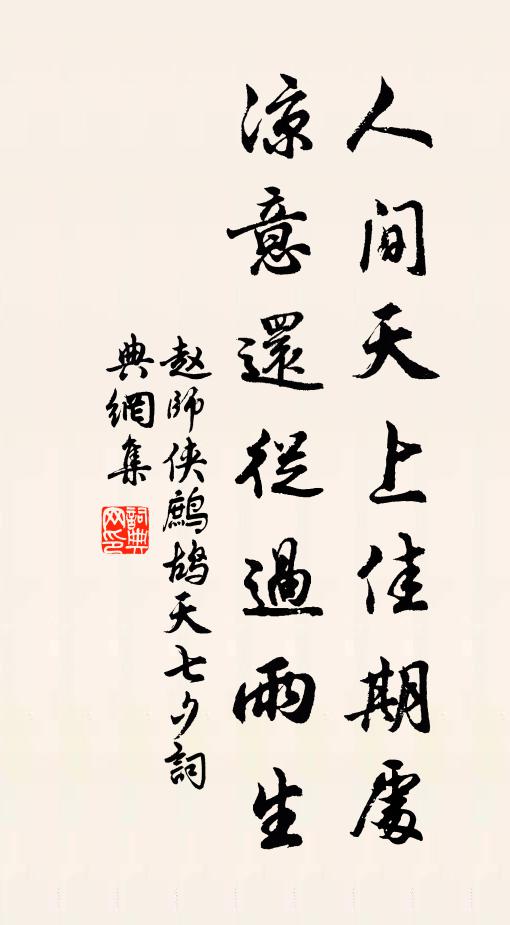 人间天上佳期處
凉意還從過雨生
赵師侠鷓鴣天七夕詞
典網集
詞典网印